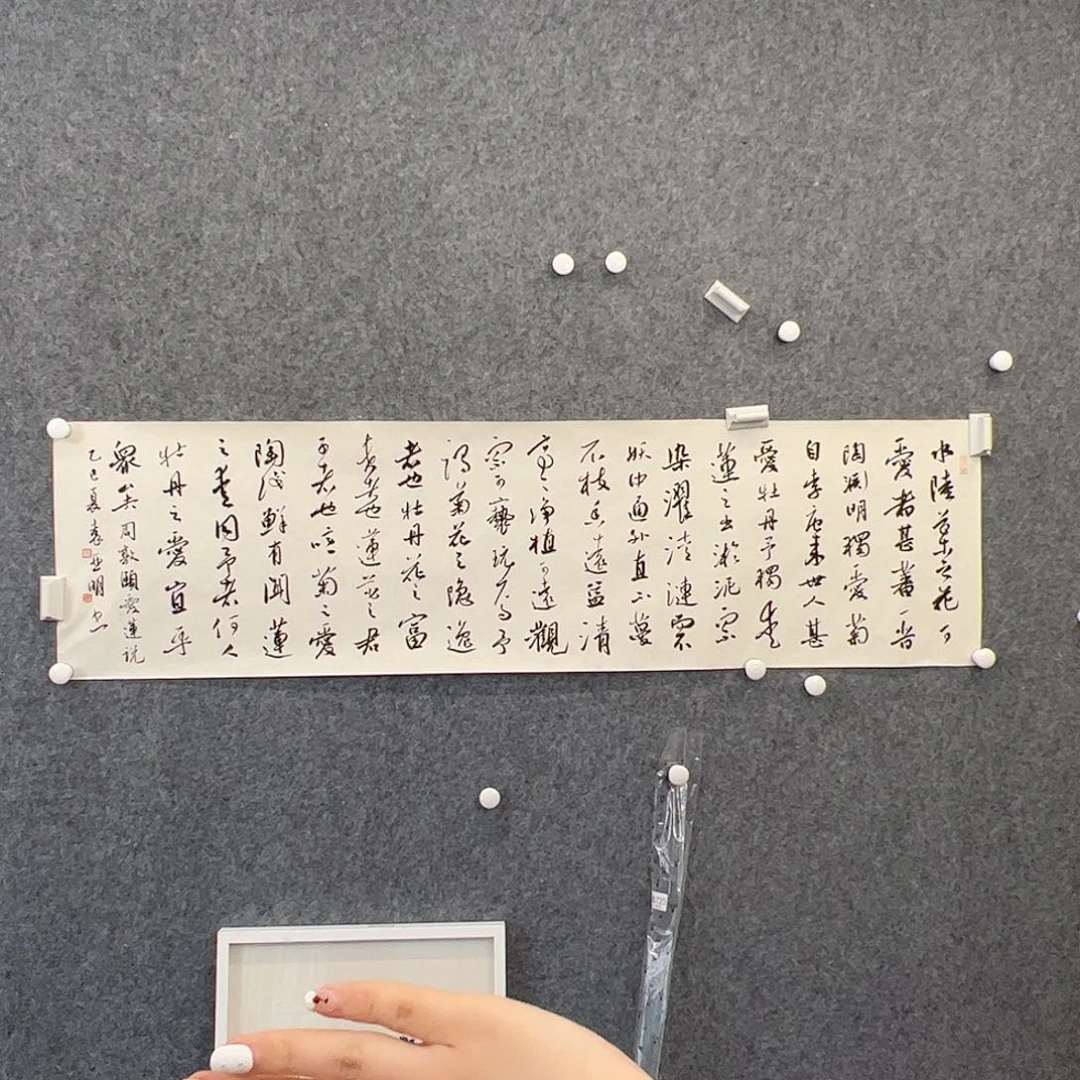 水陸草木之花可
愛者甚蕃晉
陶淵明獨愛菊
自李唐來世人甚
愛牡丹予獨愛
蓮之出淤泥而不
染濯清漣而不
妖中通外直不蔓
不枝香遠益清
亭亭淨植可遠觀
而不可褻玩焉予
謂菊花之隱逸
者也牡丹花之富
貴者也蓮花之君
子者也噫菊之愛
陶後鮮有聞蓮
之愛同予者何人
牡丹之愛宜乎
眾矣周敦頤愛蓮說
乙巳夏李亞明書